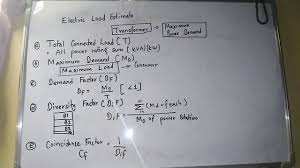 Electric Load Estimate
Transformer = Maximum
Power Demand
a) Total Connected Load (T)
- All power rating sum (kVA/kW)
b) Maximum Demand (MD)
Maximum Load → Consumer
c) Demand Factor (DF)
DF = MD / T [<1]
d) Diversity Factor (DiF)
B1
B2
B3
DiF = Σ (Md-feeder) / MD of power station
e) Coincidence Factor = 1 / DiF
Cf